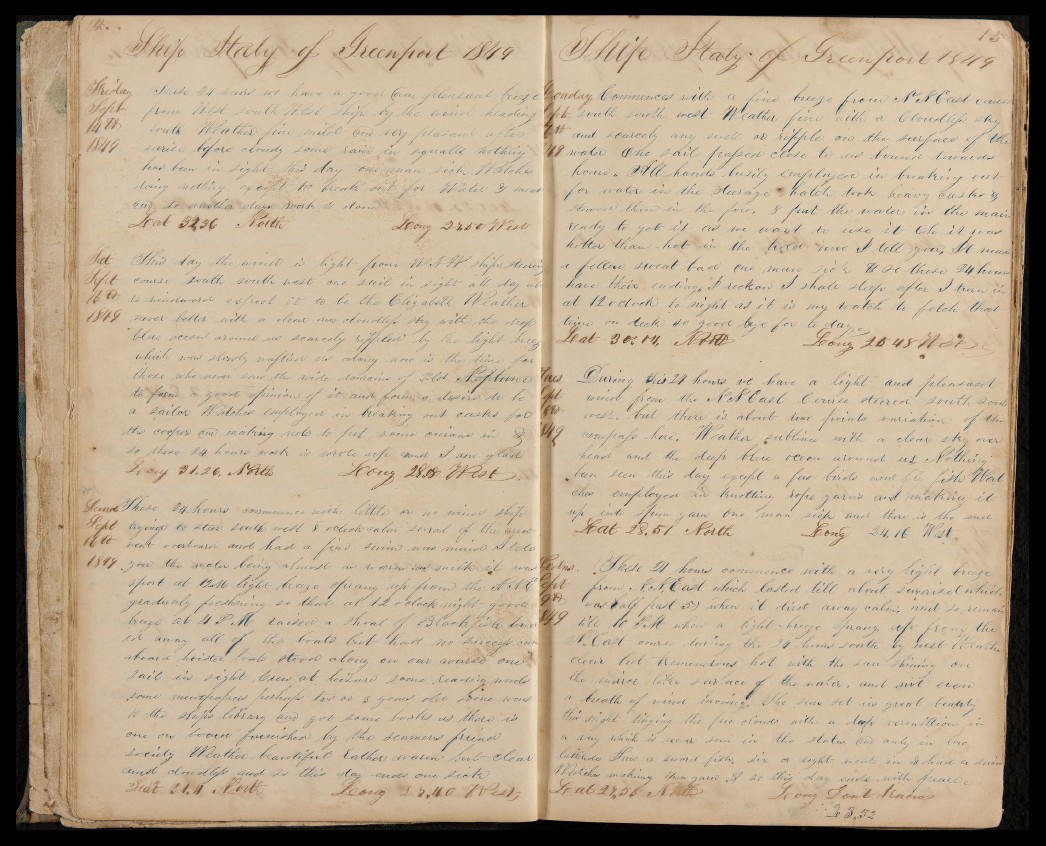 14
Ship Italy of Greenport 1849
Friday These 24 hours we have a good and pleasant breeze
Sept from West South West ship by the wind heading
14th South Weather fine mild and very pleasant after
1849 sunrise before cloudy some rain in squalls nothing
has been in sight this day one man sick Watches
doing nothing except to break out for Water &
and so another days work is done
Lat 32,36 North Long West
Sat This day the wind is light from W N W ship steering
Sept course South south west one sail in sight all day
15th to windward expect it to be the Elizabeth Weather
1849 never better with a clear and cloudless sky with the deep
blue ocean around us scarcely rippled by the light breeze
which was slowly wafting us along now is the time for
those who never saw the wide domains of Old Neptune
to form a good opinion of it and form a desire to be
a sailor Watches employed in breaking out casks for
the cooper and making nets to put some onions in &
so these 24 hours work is wrote up and I am glad
Long 31.26. North Long 28.18 West
Sund These 24 hours commence with little or no wind ship
Sept trying to steer South west 8 oclock calm several of the crew
16th went overboard and had a fine swim now mind I tell
1849 you the water being almost as warm as milk it was
sport at 12 M light breeze sprang up from the N N E
gradualy freshning so that at 12 oclock night good
breeze at 4 P.M raised a shoal of Blackfish
away all of the boats but had no success
aboard hoisted boats stood along on our course one
sail in sight Crew at leisure some reading novels
some newspapers perhaps two or 3 years old some went
to the ships library and got some books as there is
one on board furnished by the seamens friend
society Weather beautiful rather warm but clear
and cloudless and so this day ends one sick
Lat 31.11 North Long 27,40 West,
15
Ship Italy of Greenport 1849
Monday Commences with a fine breeze from N N East course
Sept South south west Weather fine with a Cloudless sky
17th and scarcely any swell or ripple on the surface of the
1849 water One sail passed close to us bound towards
home. All hands busily employed in breaking out
for water in the Steerage hatch took heavy casks &
stowed them in the fore, & put the water in the main
ready to get it as we want to use it Oh it was
hotter than hot in the hold now I tell you, It made
a fellow sweat bad one man sick & so these 24 hours
have their ending, I reckon I shall sleep after I turn in
at 12 oclock to night as it is my watch to fetch that
time on deck so good bye for to day
Lat 30.04 North Long 25 48 West
Tues During this 24 hours we have a light and pleasant
Sept wind from the N N East Course steered South South
18th west. but there is about two points variation of the
1849 compass here. Weather sublime with a clear sky over
head and the deep blue ocean around us Nothing
been seen this day except a few birds and fish Wat
ches employed in knotting rope yarns and making it
up into spun yarn One man sick and there is the end
Lat 28.51 North Long 24.16 West
Wednes. These 24 hours commence with a very light breeze
Sept from N.N.East which lasted till about sunrise (which
19th was half past 5) when it died away calm. and so remain
1849 till 10 P.M when a light breeze sprang up from the
N.East course during the 24 hours South by west Weather
clear but tremendous hot with the sun shining on
the mirror like surface of the water, and not even
a breath of wind moving The sun set in great beauty
this night tinging the few clouds with a deep vermillion in
a way which is never seen in the States and only in low
latitude Saw a sword fish, six or eight went in & had a swim
Watches making spun yarn & so this day ends with peace
Lat 27,56 North Long Dont Know
23,52